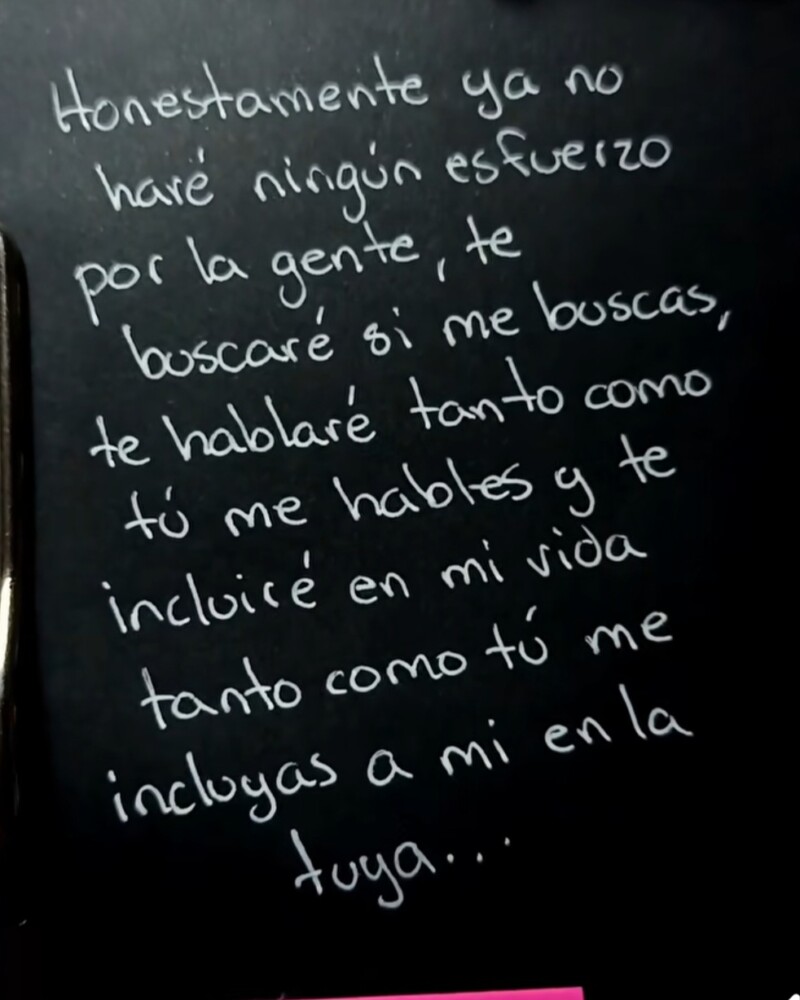 Honestamente ya no
haré ningún esfuerzo
por la gente, te
buscaré si me buscas,
te hablaré tanto como
tú me hables y te
incluiré en mi vida
tanto como tú me
incluyas a mi en la
tuya...